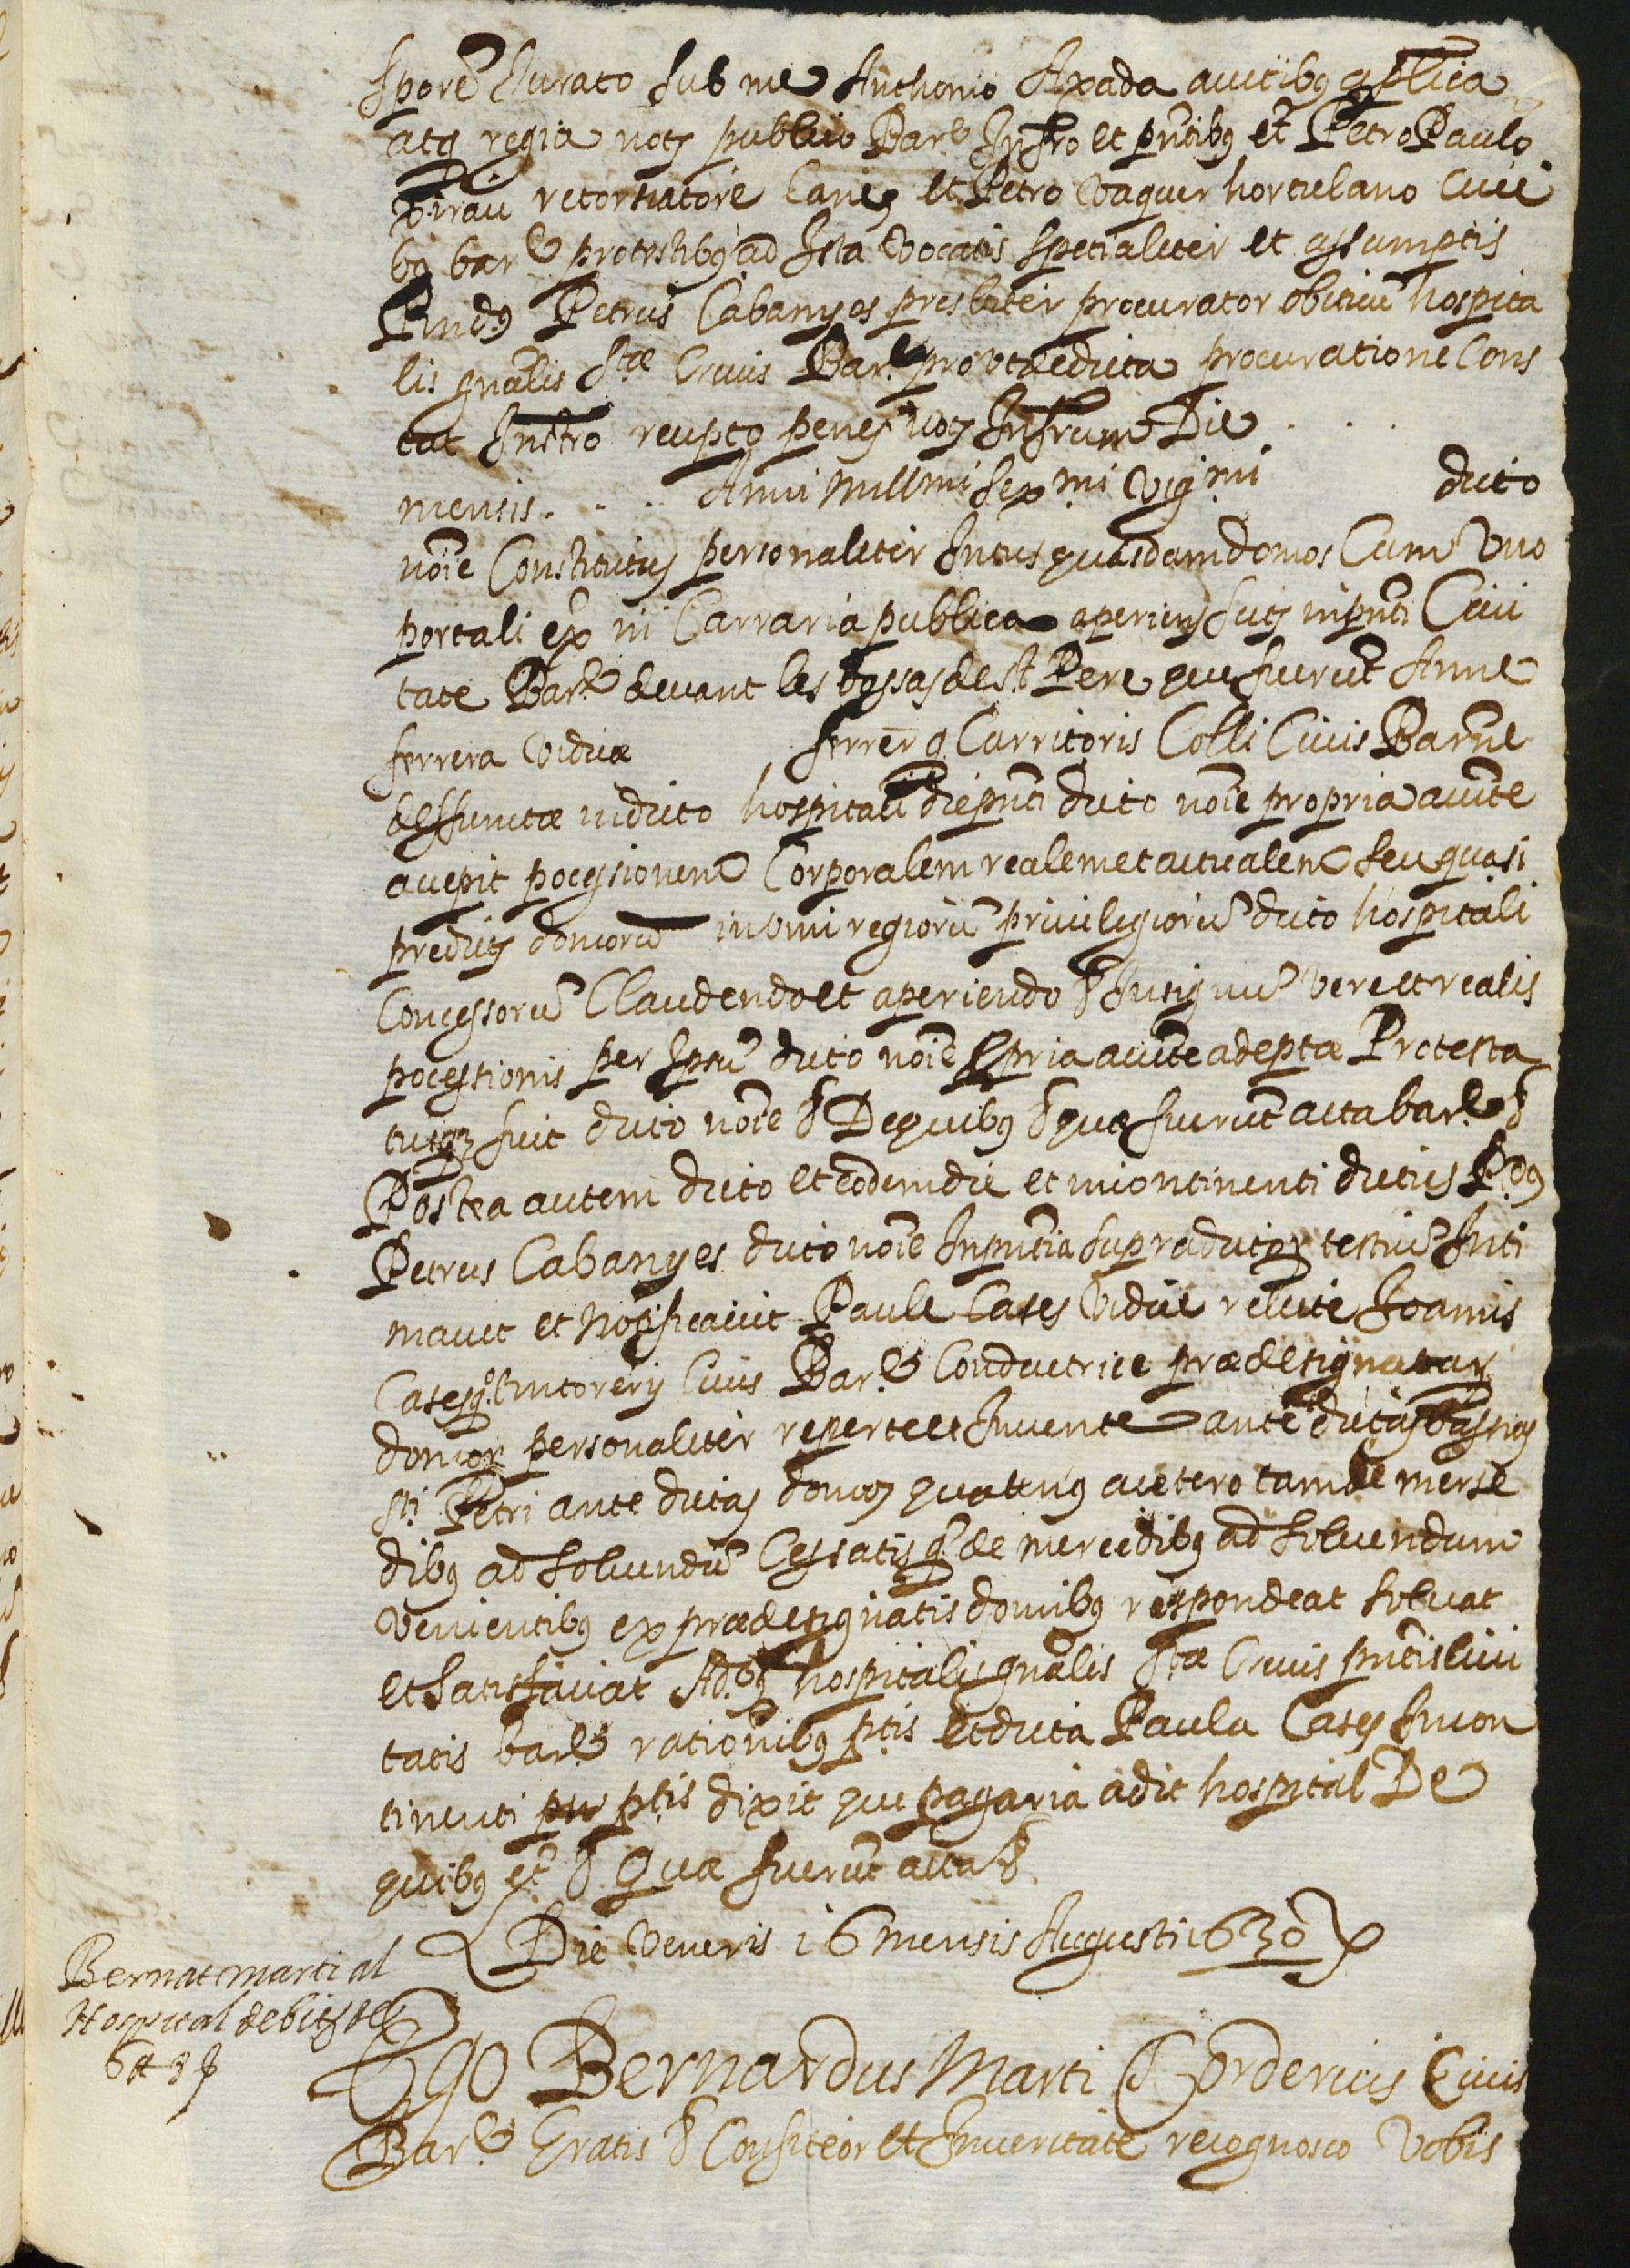 spore Jurato sub me Anthonio Axada auctibꝰ aplica
atq regia notʒ publico Barᵉ Infro et pntibꝰ etᵃ Petro Paulo
Pirau retorsiatore lane et Petro Vaquer hortulano Civi
bꝰ barᵉ protestibꝰ ad Ista vocatis spetialiter et assumptis
Rndꝰ Petrus Cabanyes presbiter procurator obitiu hospita
lis gnalis Stæ Crucis Barᵉ prout de dicta procuratione Cons
tat Instro recepto penes notʒ Infrum Die . . .
mensis . . . Anni Millmi sexmi vigmi dicto
noie Constitutus personaliter Intus quasdam domos Cum Uno
portali ex in Carraria publica aperiens sitʒ in pnti Civi
tate Barᵉ devant les bassas de St Pere que fuerut Anne
ferrera vidua ferrer q Curritoris Colli Civis Barne
deffunctæ in dicto hospitali die pnti dicto noie propria aucte
accepit pocessionem Corporalem realem et actualem seu quasi
predictʒ domoru in vim regioru privilegioru dicto hospitali
Concessoru Claudendo et aperiendo & In signu vere et realis
pocessionis per Ipsu dicto noie ppria aucte adeptæ Protesta
tusqʒ fuit dicto noie & De quibꝰ & quæ fuerut acta barᵉ &
Postea autem dicto et eodem die et incontinenti dictus Rdꝰ
Petrus Cabanyes dicto noie In pntia supradictoʒ testiu Inti
mavit et notificavit Paule Cases vidue relicte Joannis
Cases q° Civis Barᵉ Conductrice prædesignatar
domor personaliter reperte et Invente ante dictas bassias
Sti Petri ante dictas domos quatenꝰ a cetero tam de merse
dibꝰ ad solvendu Cessatis q de mercedibꝰ ad solvendum
venientibꝰ ex prædesignatis domibꝰ respondeat solvat
et satisfaciat Adᵒʒ hospitalis gnalis Stæ Crucis pntis Civi
tatis barᵉ rationibꝰ ptis et dicta Paula Cases Incon
tinenti ptis dixit que pagaria a dit hospital De
quibꝰ etᵃ & Quæ fuerut acta &
Die Veneris 16 mensis Augusti 1630
Bernat marti al
Hospital debitʒ de
6 ₶ 8 ẜ
Ego Bernardus Marti Corderius Civis
Barᵉ Gratis & Confiteor et In veritate recognosco Vobis